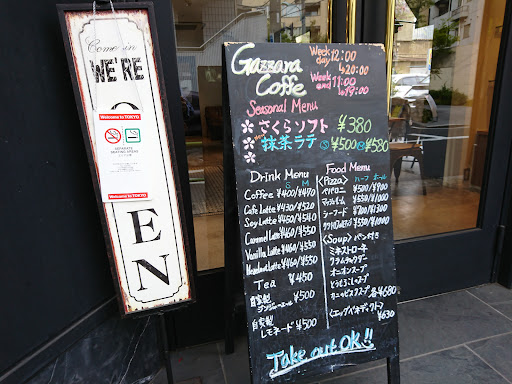 Come in
WE'RE
Welcome to TOKYO
SEPARATE
SEATING AREAS
Welcome to TOKYO
E
N
Gazzara
Coffe
Week day 12:00
~20:00
Week end 11:00
~19:00
Seasonal Menu
さくらソフト ¥380
抹茶ラテ Ⓢ¥500 Ⓜ¥580
Drink Menu
S M
Coffee ¥400/¥470
Cafe Latte ¥430/¥520
Soy Latte ¥460/¥540
Caramel Latte ¥460/¥550
Vanilla Latte ¥460/¥550
Hazelnut Latte ¥460/¥550
Tea ¥450
自家製
ジンジャーエール ¥500
自家製
レモネード ¥500
Food Menu
<Pizza> ハーフ ホール
ペパロニ ¥500/¥900
マッシュルーム ¥550/¥1000
シーフード ¥700/¥1300
¥550/¥1000
<Soup> パン付き
ミネストローネ
クラムチャウダー
オニオンスープ
とうもろこしスープ
かにのビスクスープ 各¥680
<エッグベネディクト>
¥630
Take out OK!!